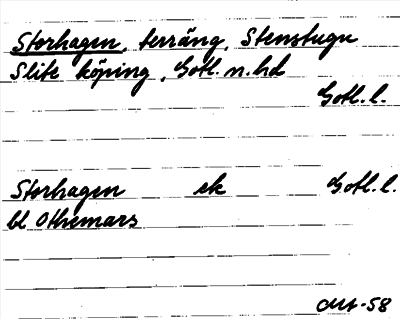 Storhagen, terräng, Stenstugu
Slite köping, Gotl. n. hd
Gotl. l.
Storhagen ek Gotl. l.
bl Othemars
-58